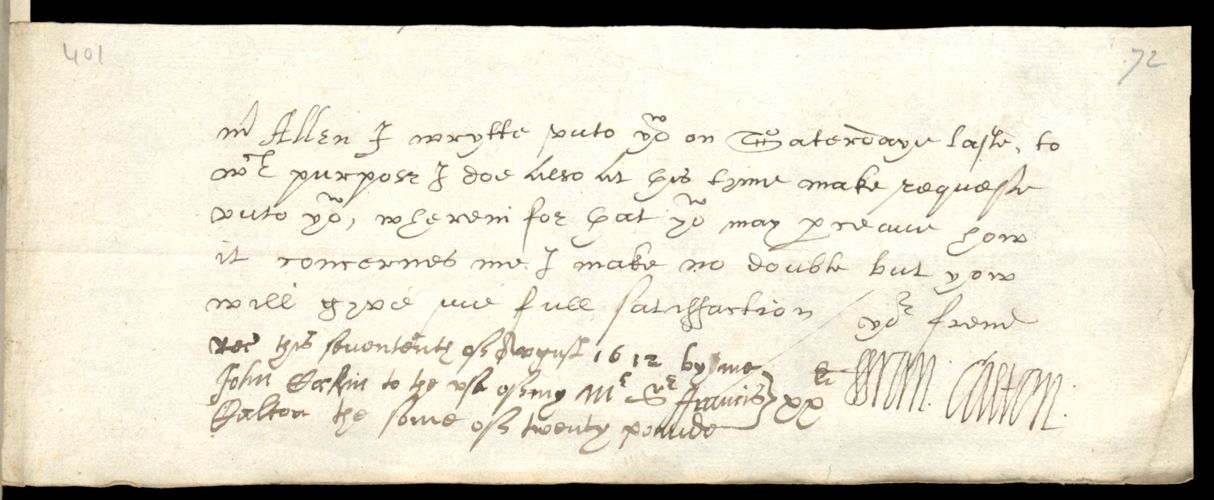 401
72
Mr Allen I wrytte vnto yow on Saterdaye laste, to
wch purpose I doe also at this tyme make requeste
vnto yow, wherein for that yow may perceaue how
it concernes me I make no double but yow
will gyve me full satisffaction yor frend
Fran: Calton.
Rec this sevententh off August 1612 by me
John to the vse off my Mr Sr ffrancis
Calton the some off twenty pounde } xxli